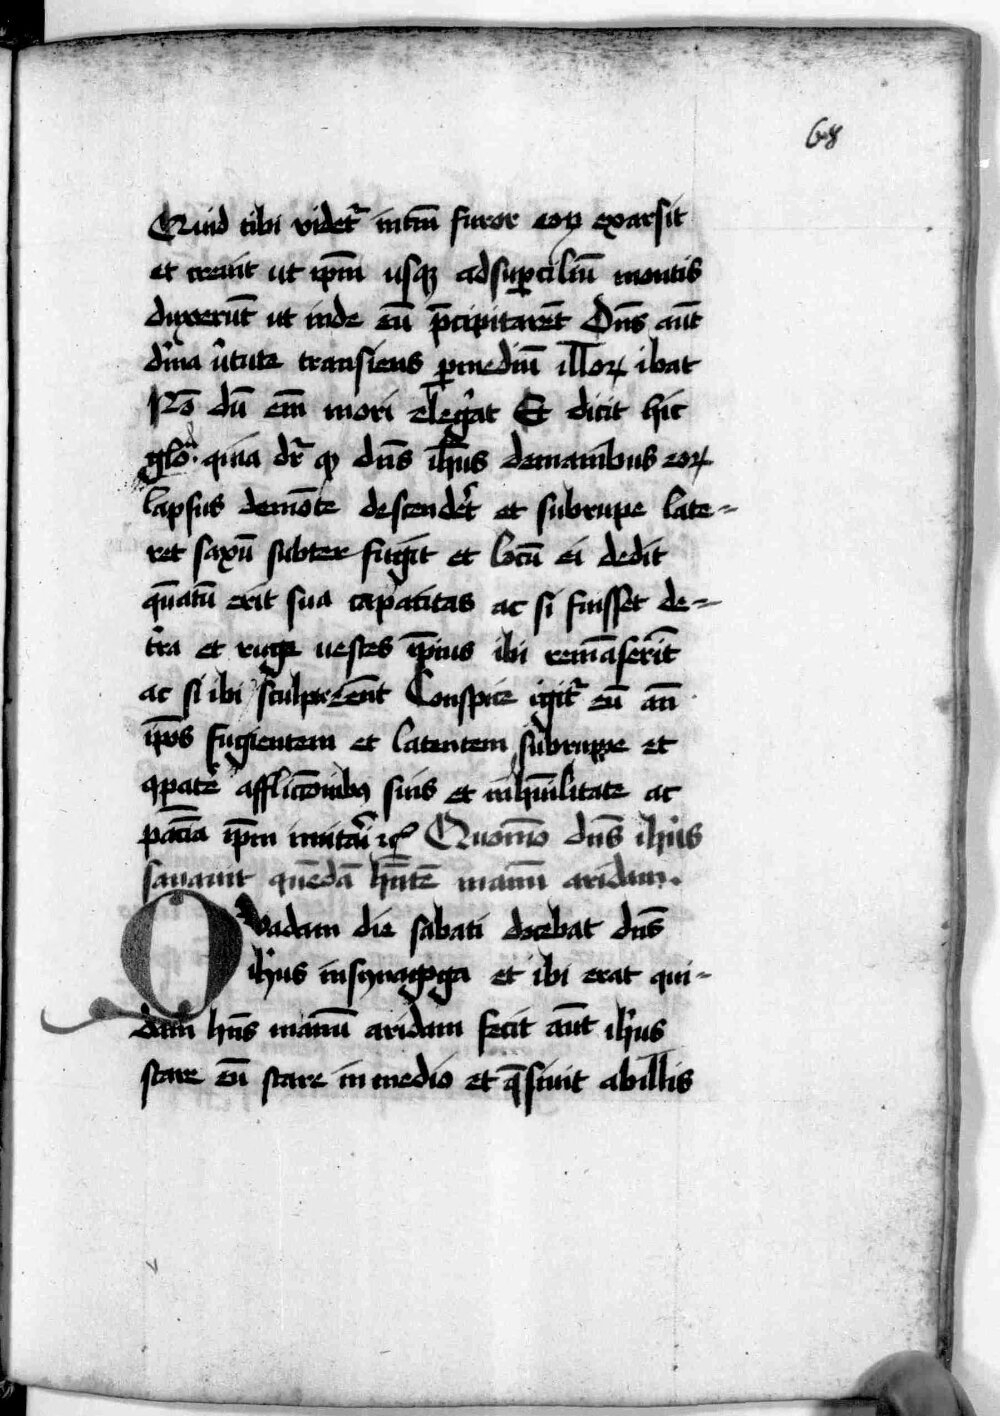 68
Quid tibi videt᷑ intm̄ furor eoꝝ exarsit
et creuit ut ip̄m usqꝫ adsup̱ciliū montis
duxerūt ut inde eū p̄cipitarēt Dn̄s aūt
diͥna uͥtute transiens ꝑmediū illoꝝ ibat
Nō dū em̄ mori elegͣat Et dicit hic
glōͣ· quia dr̄ ꝙ dn̄s ih̄us demanibus eoꝝ
lapsus demōte descendet᷑ et subrupe late-
ret saxū subter fugit et locū ei dedit
qͣntū erit sua capacitas ac si fuisset de-
cͤra et ruge uestes ip̄ius ibi remāserīt
ac si ibi sculpte eēnt Conspice igit᷑ eū an̄
ip̄os fugientem et latentem subruppe et
ꝯpatē afflictōnibꝰ suis et inhūilitate ac
pacīa ip̄m imitaͥi ⁊cͣ Quomō dn̄s ih̄us
sanauit quēdā hn̄tē manū aridam.
Quadam die sabati docebat dn̄s
ih̄us insynagoga et ibi erat qui-
dam hn̄s manū aridam fecit aūt ih̄us
stare eū stare in medio et q̄siuit abillis